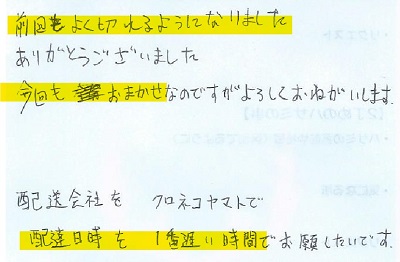 前回もよく切れるようになりました
ありがとうございました
今回もおまかせなのですがよろしくおねがいします。
配送会社を クロネコヤマトで
配達日時を 1番遅い時間でお願したいです。